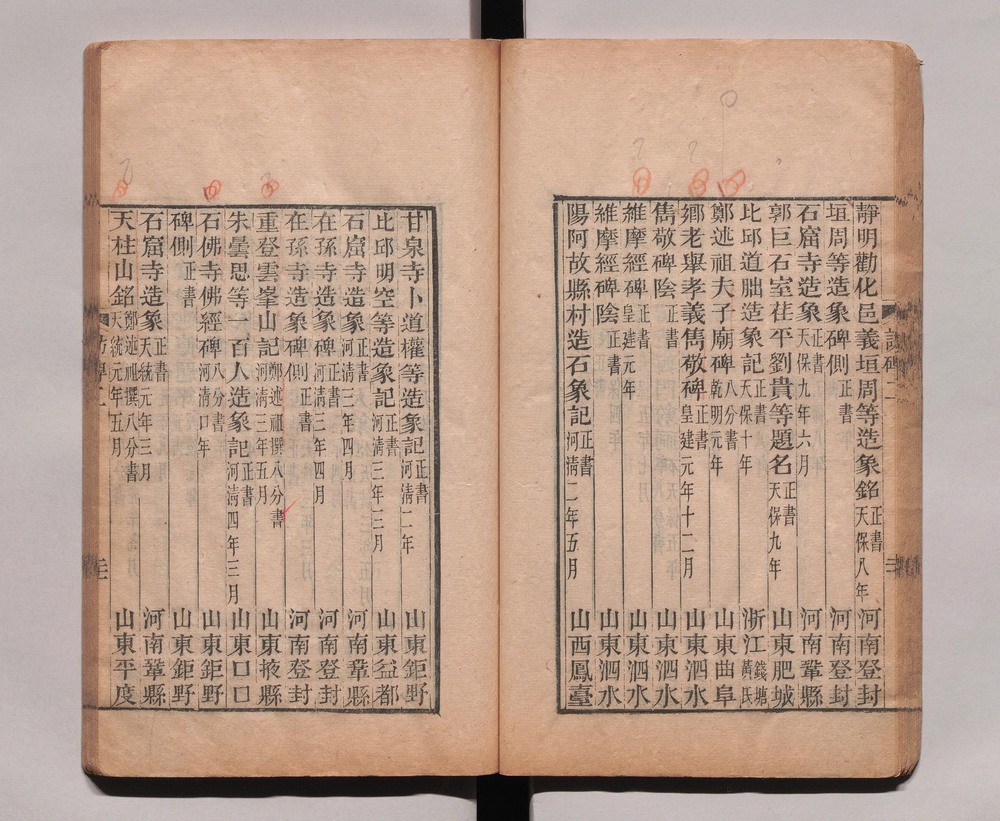 靜明勸化邑義垣周等造象銘 正書 天保八年 河南登封
垣周等造象碑側 正書 河南登封
石窟寺造象 正書 天保九年六月 河南鞏縣
郭巨石室茌平劉貴等題名 正書 天保九年 山東肥城
比邱道朏造象記 正書 天保十年 浙江 錢塘黃氏
鄭述祖夫子廟碑 八分書 乾明元年 山東曲阜
鄉老舉孝義雋敬碑 正書 皇建元年十二月 山東泗水
雋敬碑陰 正書 山東泗水
維摩經碑 正書 皇建元年 山東泗水
維摩經碑陰 正書 山東泗水
陽阿故縣村造石象記 正書 河淸二年五月 山西鳳臺
甘泉寺卜道權等造象記 正書 河淸二年 山東鉅野
比邱明空等造象記 正書 河淸三年三月 山東益都
石窟寺造象 正書 河淸三年四月 河南鞏縣
在孫寺造象碑 正書 河淸三年四月 河南登封
在孫寺造象碑側 正書 河南登封
重登雲峯山記 鄭述祖撰八分書 河淸三年五月 山東掖縣
朱曇思等一百人造象記 正書 河淸四年三月 山東口口
石佛寺佛經碑 八分書 河淸口年 山東鉅野
碑側 正書 山東鉅野
石窟寺造象 正書 天統元年三月 河南鞏縣
天柱山銘 鄭述祖撰八分書 天統元年五月 山東平度